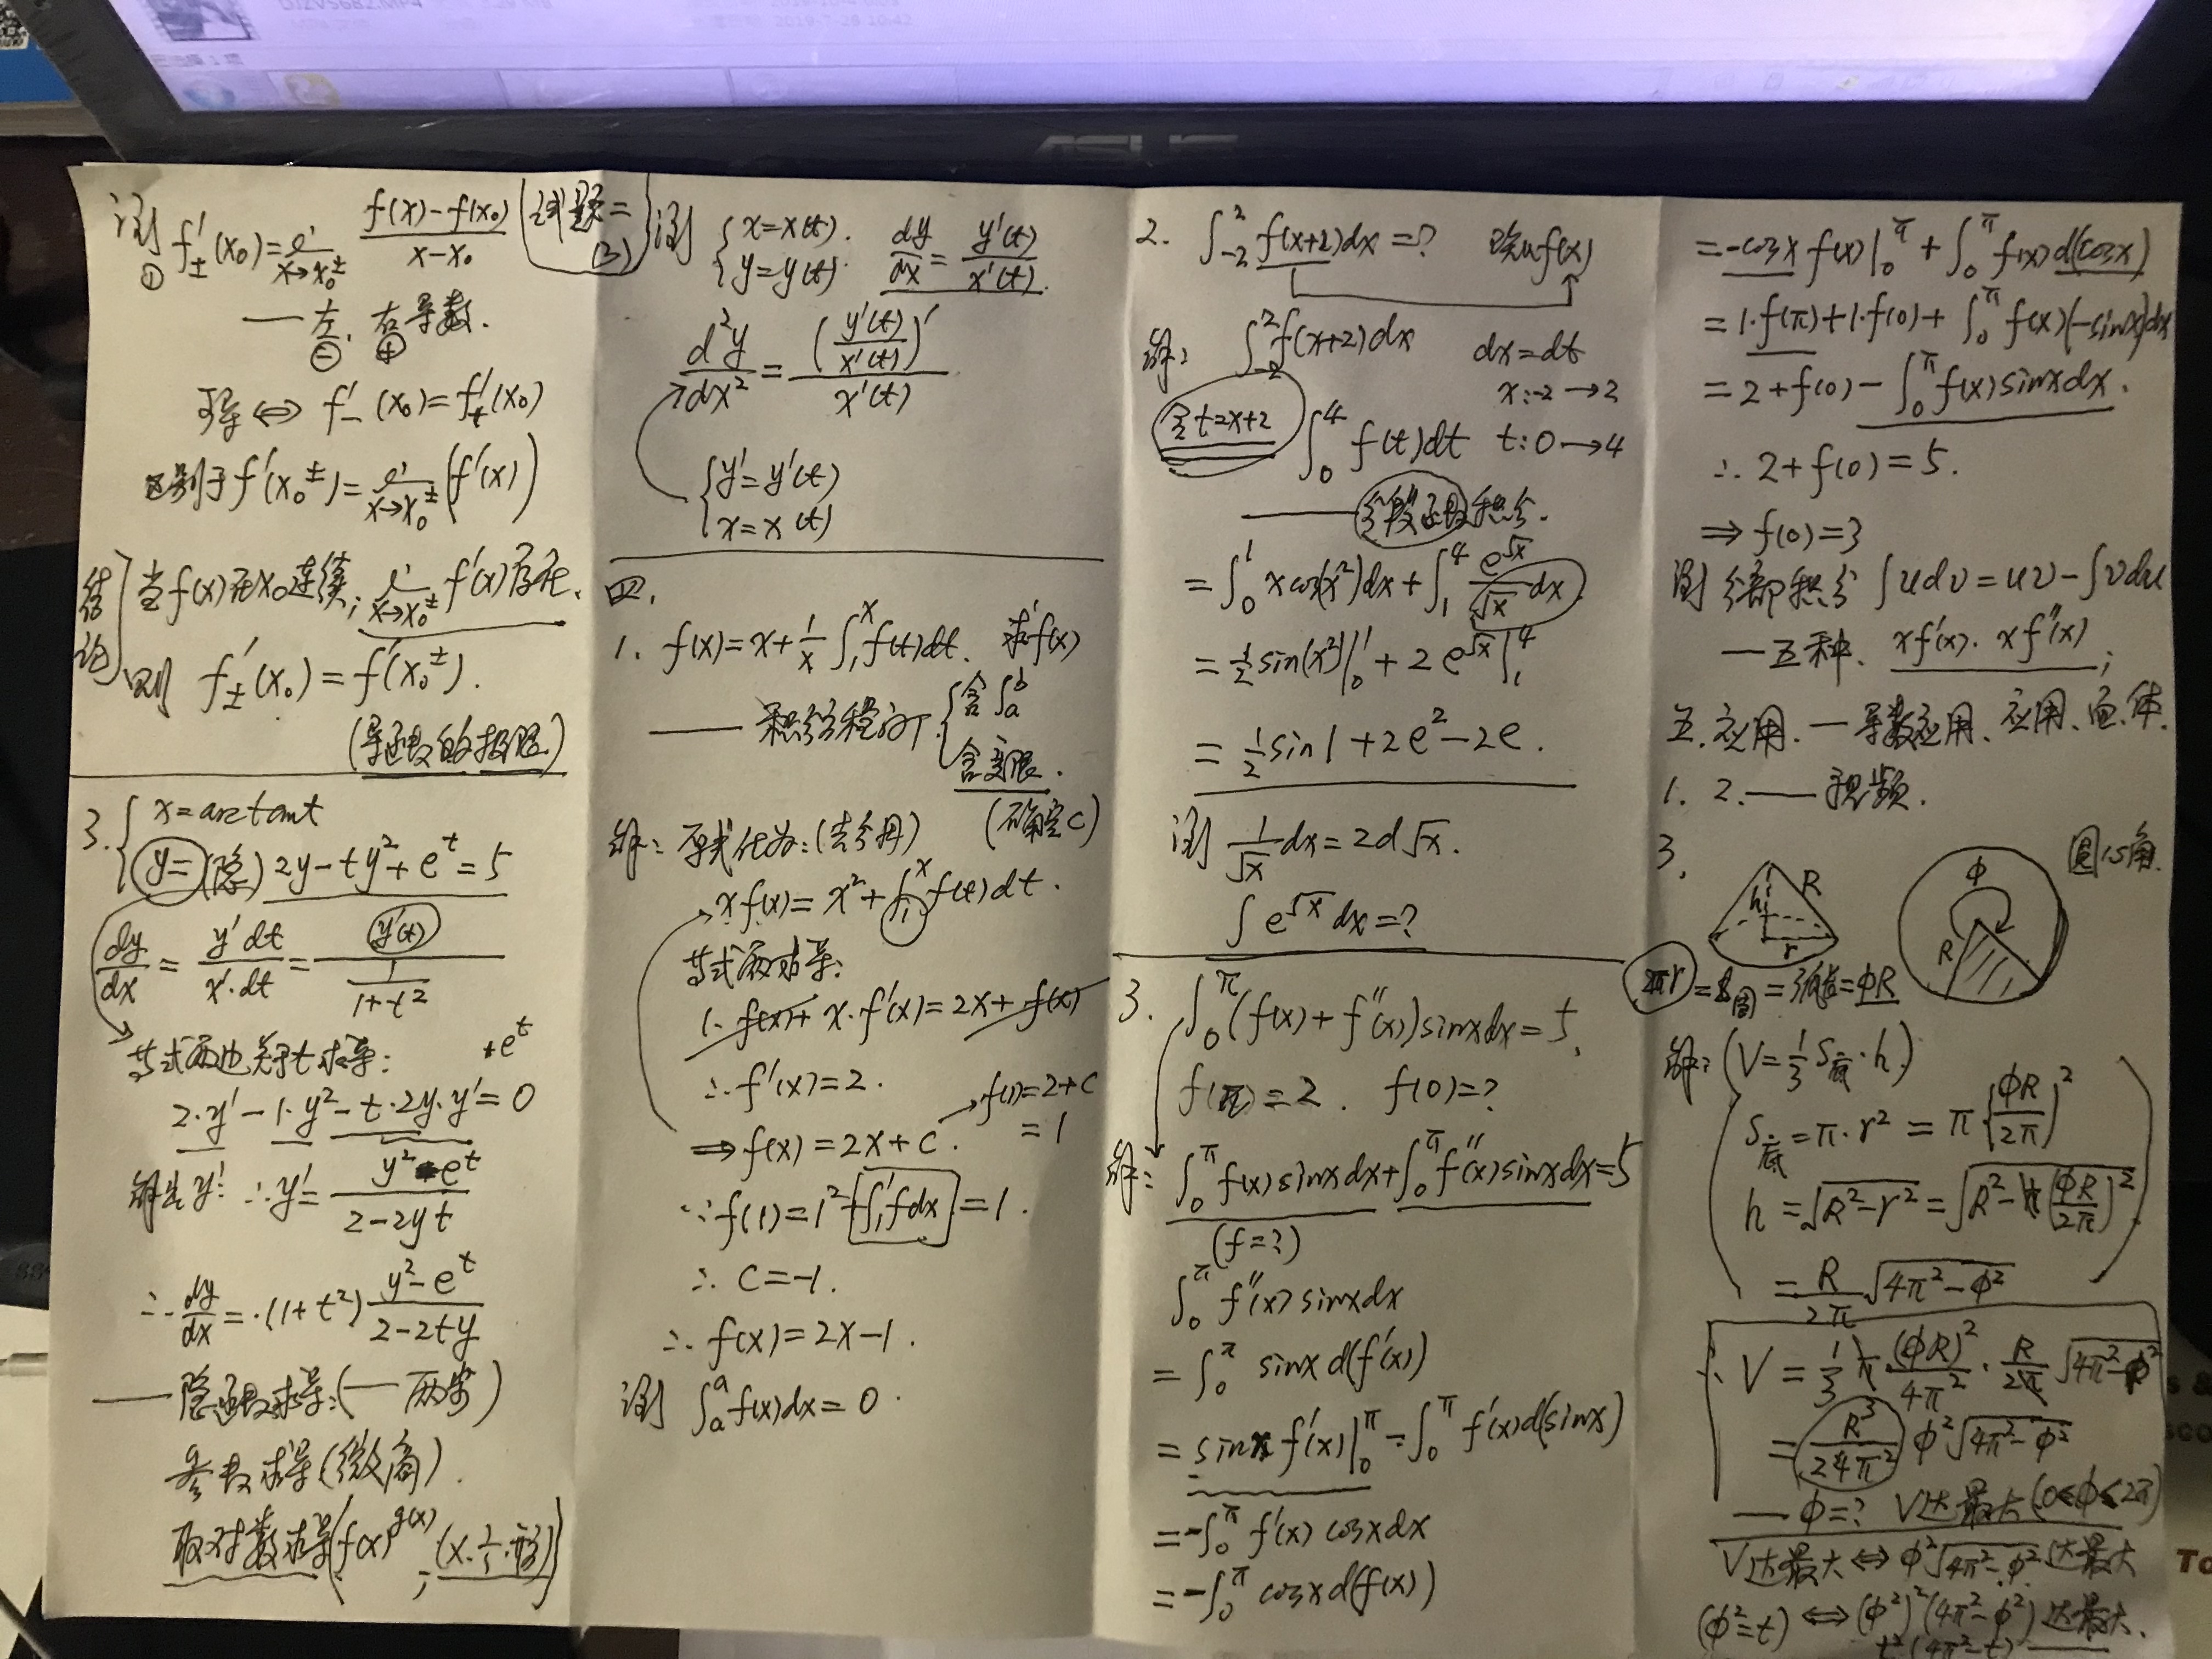 DJ2V5682.MP4
2019-7-28 10:42
ASUS
注 f'±(x₀)=lim x→x₀± (f(x)-f(x₀))/(x-x₀)
①
试题二(3)
——左、右导数.
⊖ ⊕
可导⇔f'₋(x₀)=f'₊(x₀)
区别于f'(x₀±)=lim x→x₀± (f'(x))
结论
当f(x)在x₀连续; lim x→x₀± f'(x)存在.
则 f'±(x₀)=f'(x₀±).
(导函数的极限)
3. { x=arctant
y=(隐) 2y-ty²+eᵗ=5
dy/dx = y'dt/x'·dt = y'(t)/(1/(1+t²))
等式两边关于t求导: +eᵗ
2·y'-1·y²-t·2y·y'=0
解出y': ∴y'=(y²-eᵗ)/(2-2yt)
∴dy/dx=·(1+t²)(y²-eᵗ)/(2-2ty)
——隐函数求导:(一两步)
参数求导(微商).
取对数求导(f(x)^g(x); (×.÷.形))
注 { x=x(t). y=y(t). dy/dx = y'(t)/x'(t).
d²y/dx² = (y'(t)/x'(t))'/x'(t)
{ y'=y'(t)
x=x(t)
四.
1. f(x)=x+1/x ∫₁ˣf(t)dt. 求f(x)
——积分方程 { 含∫ₐᵇ
含变限.
(确定C)
解: 原式化为:(去分母)
xf(x)=x²+∫₁ˣf(t)dt.
等式两边求导:
1·f(x)+x·f'(x)=2x+f(x)
∴f'(x)=2.
f(1)=2+C
=1
⇒f(x)=2x+C.
∵f(1)=1²+∫₁¹fdx=1.
∴C=-1.
∴f(x)=2x-1.
注 ∫ₐᵃf(x)dx=0.
2. ∫₋₂²f(x+2)dx=? 已知f(x)
解: ∫₋₂²f(x+2)dx dx=dt
x:-2→2
令t=x+2 ∫₀⁴f(t)dt t:0→4
——分段函数积分.
=∫₀¹xcos(x²)dx+∫₁⁴ e^√x/√x dx
=½sin(x²)|₀¹+2e^√x|₁⁴
=½sin1+2e²-2e.
注 1/√x dx=2d√x.
∫e^√x dx=?
3. ∫₀^π(f(x)+f''(x))sinxdx=5,
f(π)=2. f(0)=?
解: ∫₀^πf(x)sinxdx+∫₀^πf''(x)sinxdx=5
(f=?)
∫₀^πf''(x)sinxdx
=∫₀^π sinxd(f'(x))
=sinxf'(x)|₀^π-∫₀^πf'(x)d(sinx)
=-∫₀^πf'(x)cosxdx
=-∫₀^πcosxd(f(x))
=-cosxf(x)|₀^π+∫₀^πf(x)d(cosx)
=1·f(π)+1·f(0)+∫₀^πf(x)(-sinx)dx
=2+f(0)-∫₀^πf(x)sinxdx.
∴2+f(0)=5.
⇒f(0)=3
注 分部积分∫udv=uv-∫vdu
一五种、xf'(x). xf''(x);
五.应用.一导数应用、应用、面.体.
1. 2.——视频.
3. h R r φ R 圆心角.
2πr=l周=弧长=φR
解: (V=⅓S底·h.)
S底=π·r²=π(φR/2π)²
h=√(R²-r²)=√(R²-(φR/2π)²)
=R/2π √(4π²-φ²)
∴V=⅓π·(φR)²/4π²·R/2π √(4π²-φ²)
=R³/24π² φ²√(4π²-φ²)
——φ=? V达最大(0<φ<2π)
V达最大⇔φ²√(4π²-φ²)达最大
(φ²=t)⇔(φ²)²(4π²-φ²)达最大.
t²(4π²-t)
To